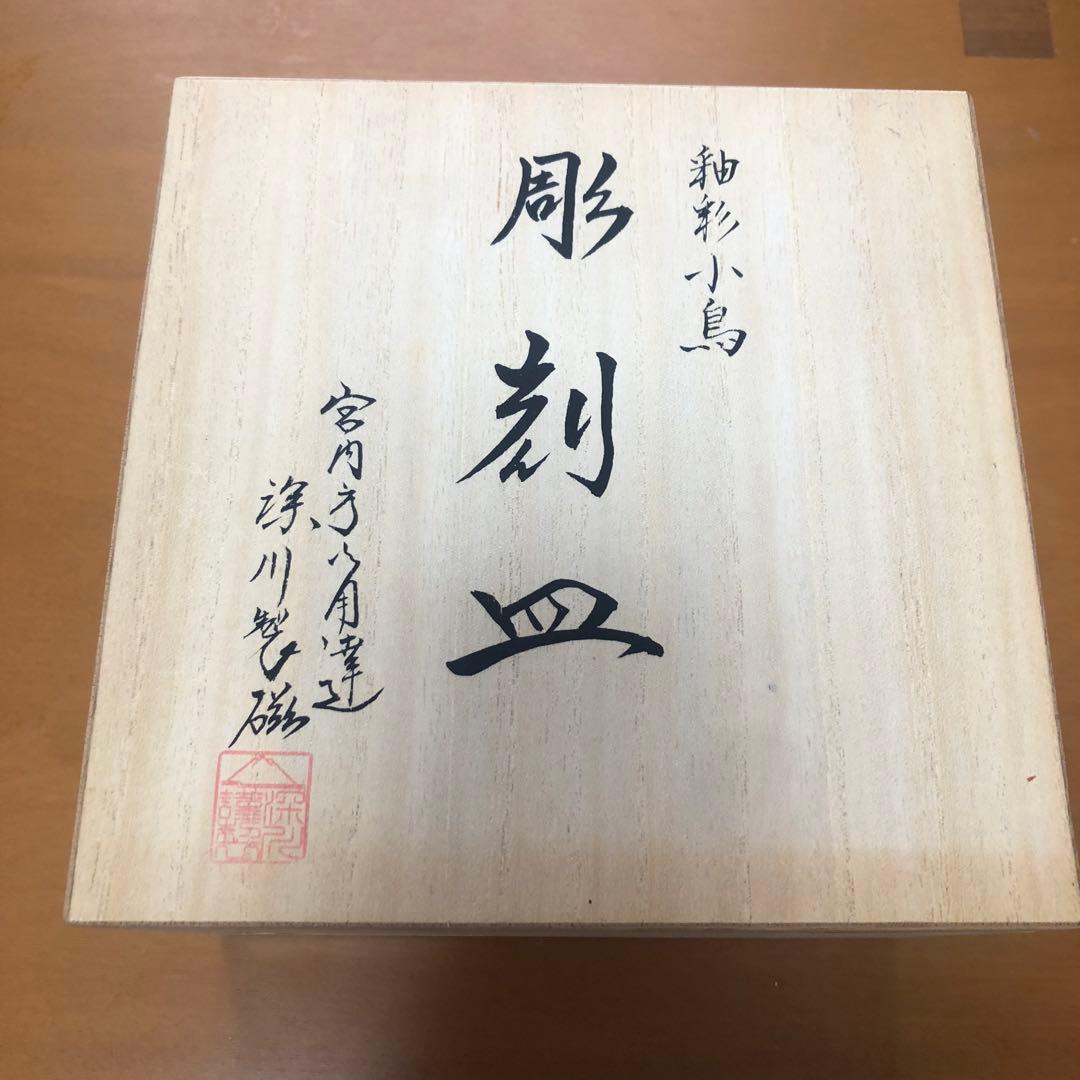 釉彩小鳥
彫刻皿
宮内庁御用達
深川製磁
深川謹製